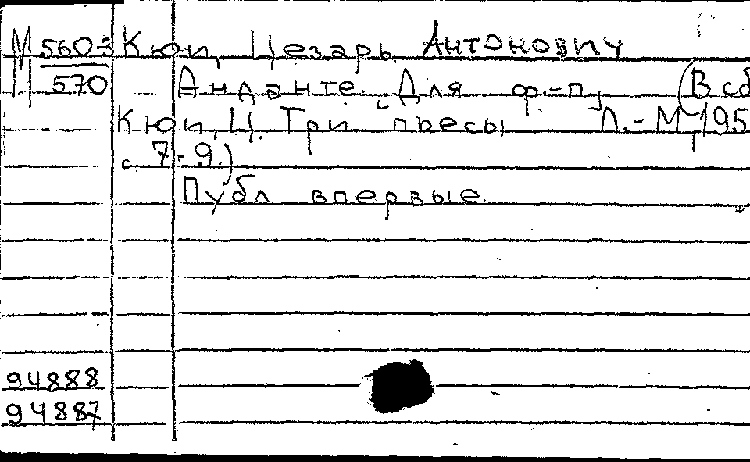 М 5603 Кюи, Цезарь Антонович
М 570 Анданте. Для ф-п, (В сб
Кюи, Ц. Три пьесы Л.-М, 195
с. 7-9.)
Публ впервые
94888
94887